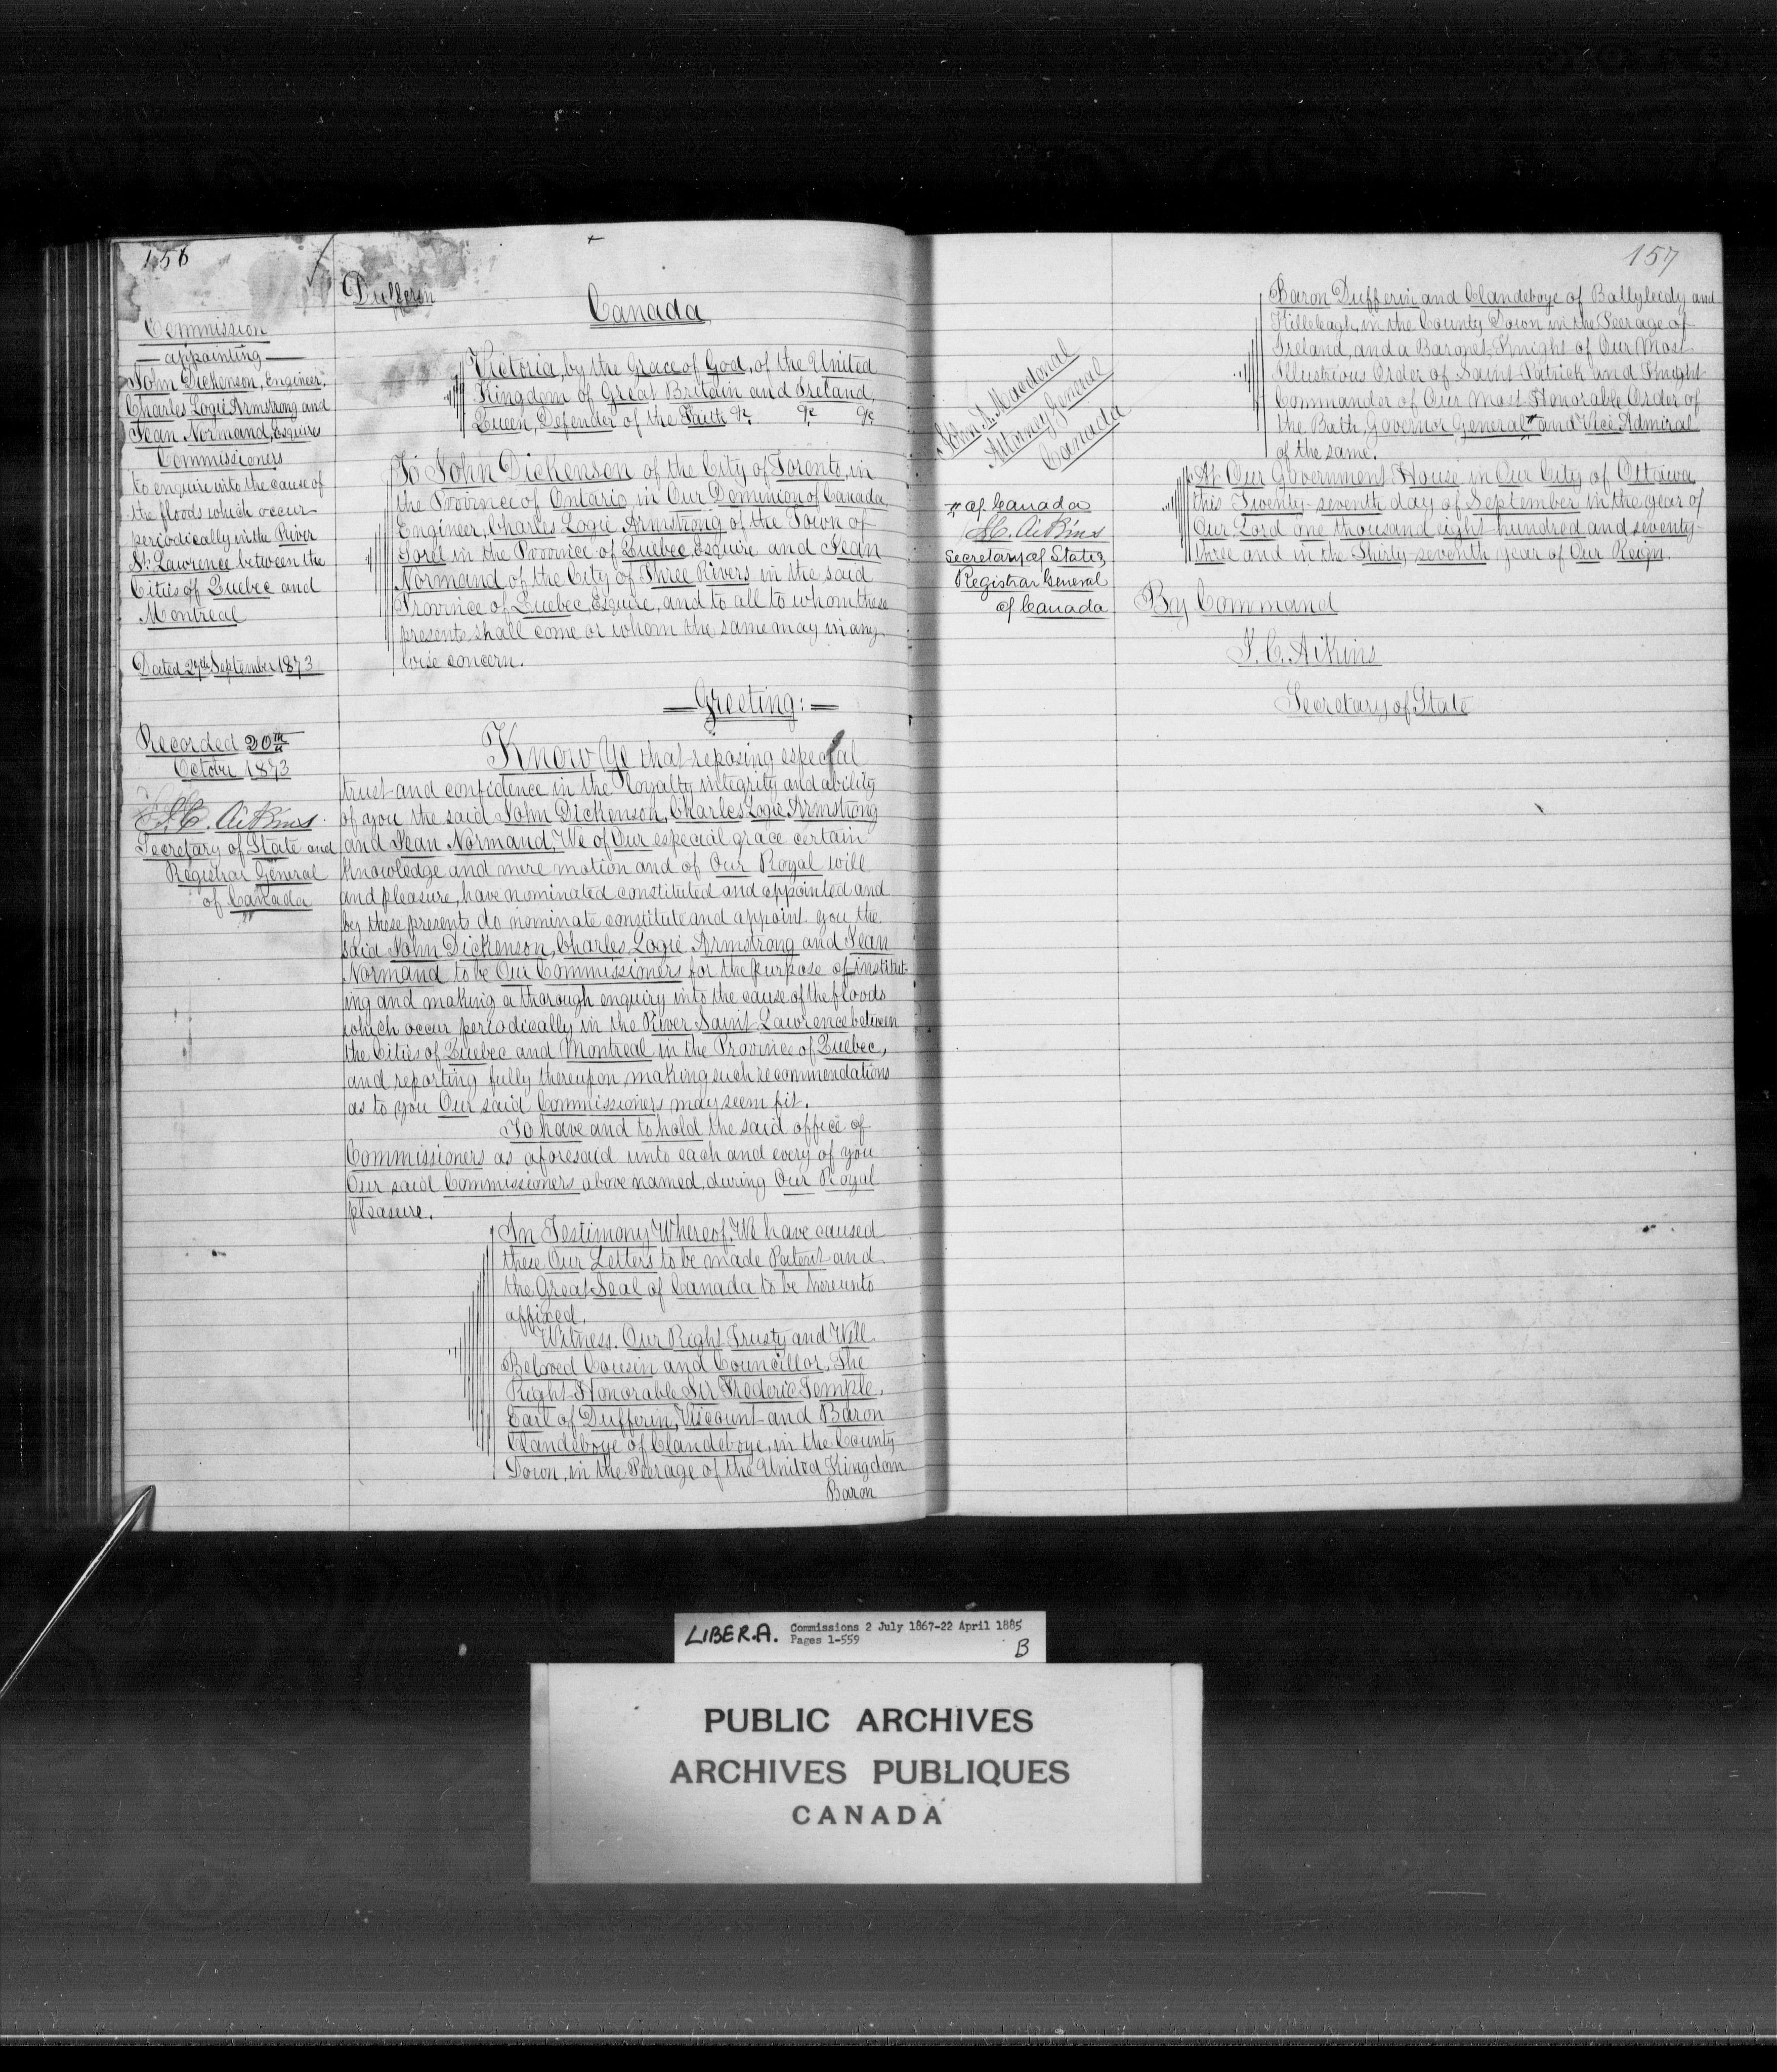 156
Commission
— appointing —
John Dickenson, Engineer,
Charles Logie Armstrong and
Jean Normand, Esquires
Commissioners
to enquire into the cause of
the floods which occur
periodically in the River
St. Lawrence between the
Cities of Quebec and
Montreal
Dated 27th September 1873
Recorded 20th
October 1873
J.C. Aikins
Secretary of State and
Registrar General
of Canada
Dufferin
Canada
Victoria, by the Grace of God, of the United
Kingdom of Great Britain and Ireland,
Queen, Defender of the Faith &c &c &c
To John Dickenson of the City of Toronto, in
the Province of Ontario in Our Dominion of Canada,
Engineer, Charles Logie Armstrong of the Town of
Sorel in the Province of Quebec, Esquire and Jean
Normand of the City of Three Rivers in the said
Province of Quebec, Esquire, and to all to whom these
presents shall come or whom the same may in any
wise concern.
— Greeting: —
Know Ye that reposing especial
trust and confidence in the loyalty integrity and ability
of you the said John Dickenson, Charles Logie Armstrong
and Jean Normand, We of Our especial grace certain
knowledge and mere motion and of Our Royal will
and pleasure, have nominated constituted and appointed and
by these presents do nominate constitute and appoint you the
said John Dickenson, Charles Logie Armstrong and Jean
Normand to be Our Commissioners for the purpose of institut-
ing and making a thorough enquiry into the cause of the floods
which occur periodically in the River Saint Lawrence between
the Cities of Quebec and Montreal in the Province of Quebec,
and reporting fully thereupon, making such recommendations
as to you Our said Commissioners may seem fit.
To have and to hold the said office of
Commissioners as aforesaid unto each and every of you
Our said Commissioners above named, during Our Royal
pleasure.
In Testimony Whereof, We have caused
these Our Letters to be made Patent and
the Great Seal of Canada to be hereunto
affixed.
Witness. Our Right Trusty and Well
Beloved Cousin and Councillor, The
Right Honorable Sir Frederic Temple,
Earl of Dufferin, Viscount and Baron
Clandeboye of Clandeboye, in the County
Down, in the Peerage of the United Kingdom
Baron
157
John A. Macdonald
Attorney General
Canada
+ of Canada
J.C. Aikins
Secretary of State &
Registrar General
of Canada
Baron Dufferin and Clandeboye of Ballyleidy and
Killeleagh, in the County Down in the Peerage of
Ireland, and a Baronet, Knight of Our Most
Illustrious Order of Saint Patrick and Knight
Commander of Our Most Honorable Order of
the Bath, Governor General + and Vice Admiral
of the same.
At Our Government House in Our City of Ottawa
this Twenty-seventh day of September in the year of
Our Lord one thousand eight hundred and seventy-
three and in the Thirty-seventh year of Our Reign.
By Command
J.C. Aikins
Secretary of State
LIBER.A. Commissions 2 July 1867-22 April 1885
Pages 1-559
B
PUBLIC ARCHIVES
ARCHIVES PUBLIQUES
CANADA